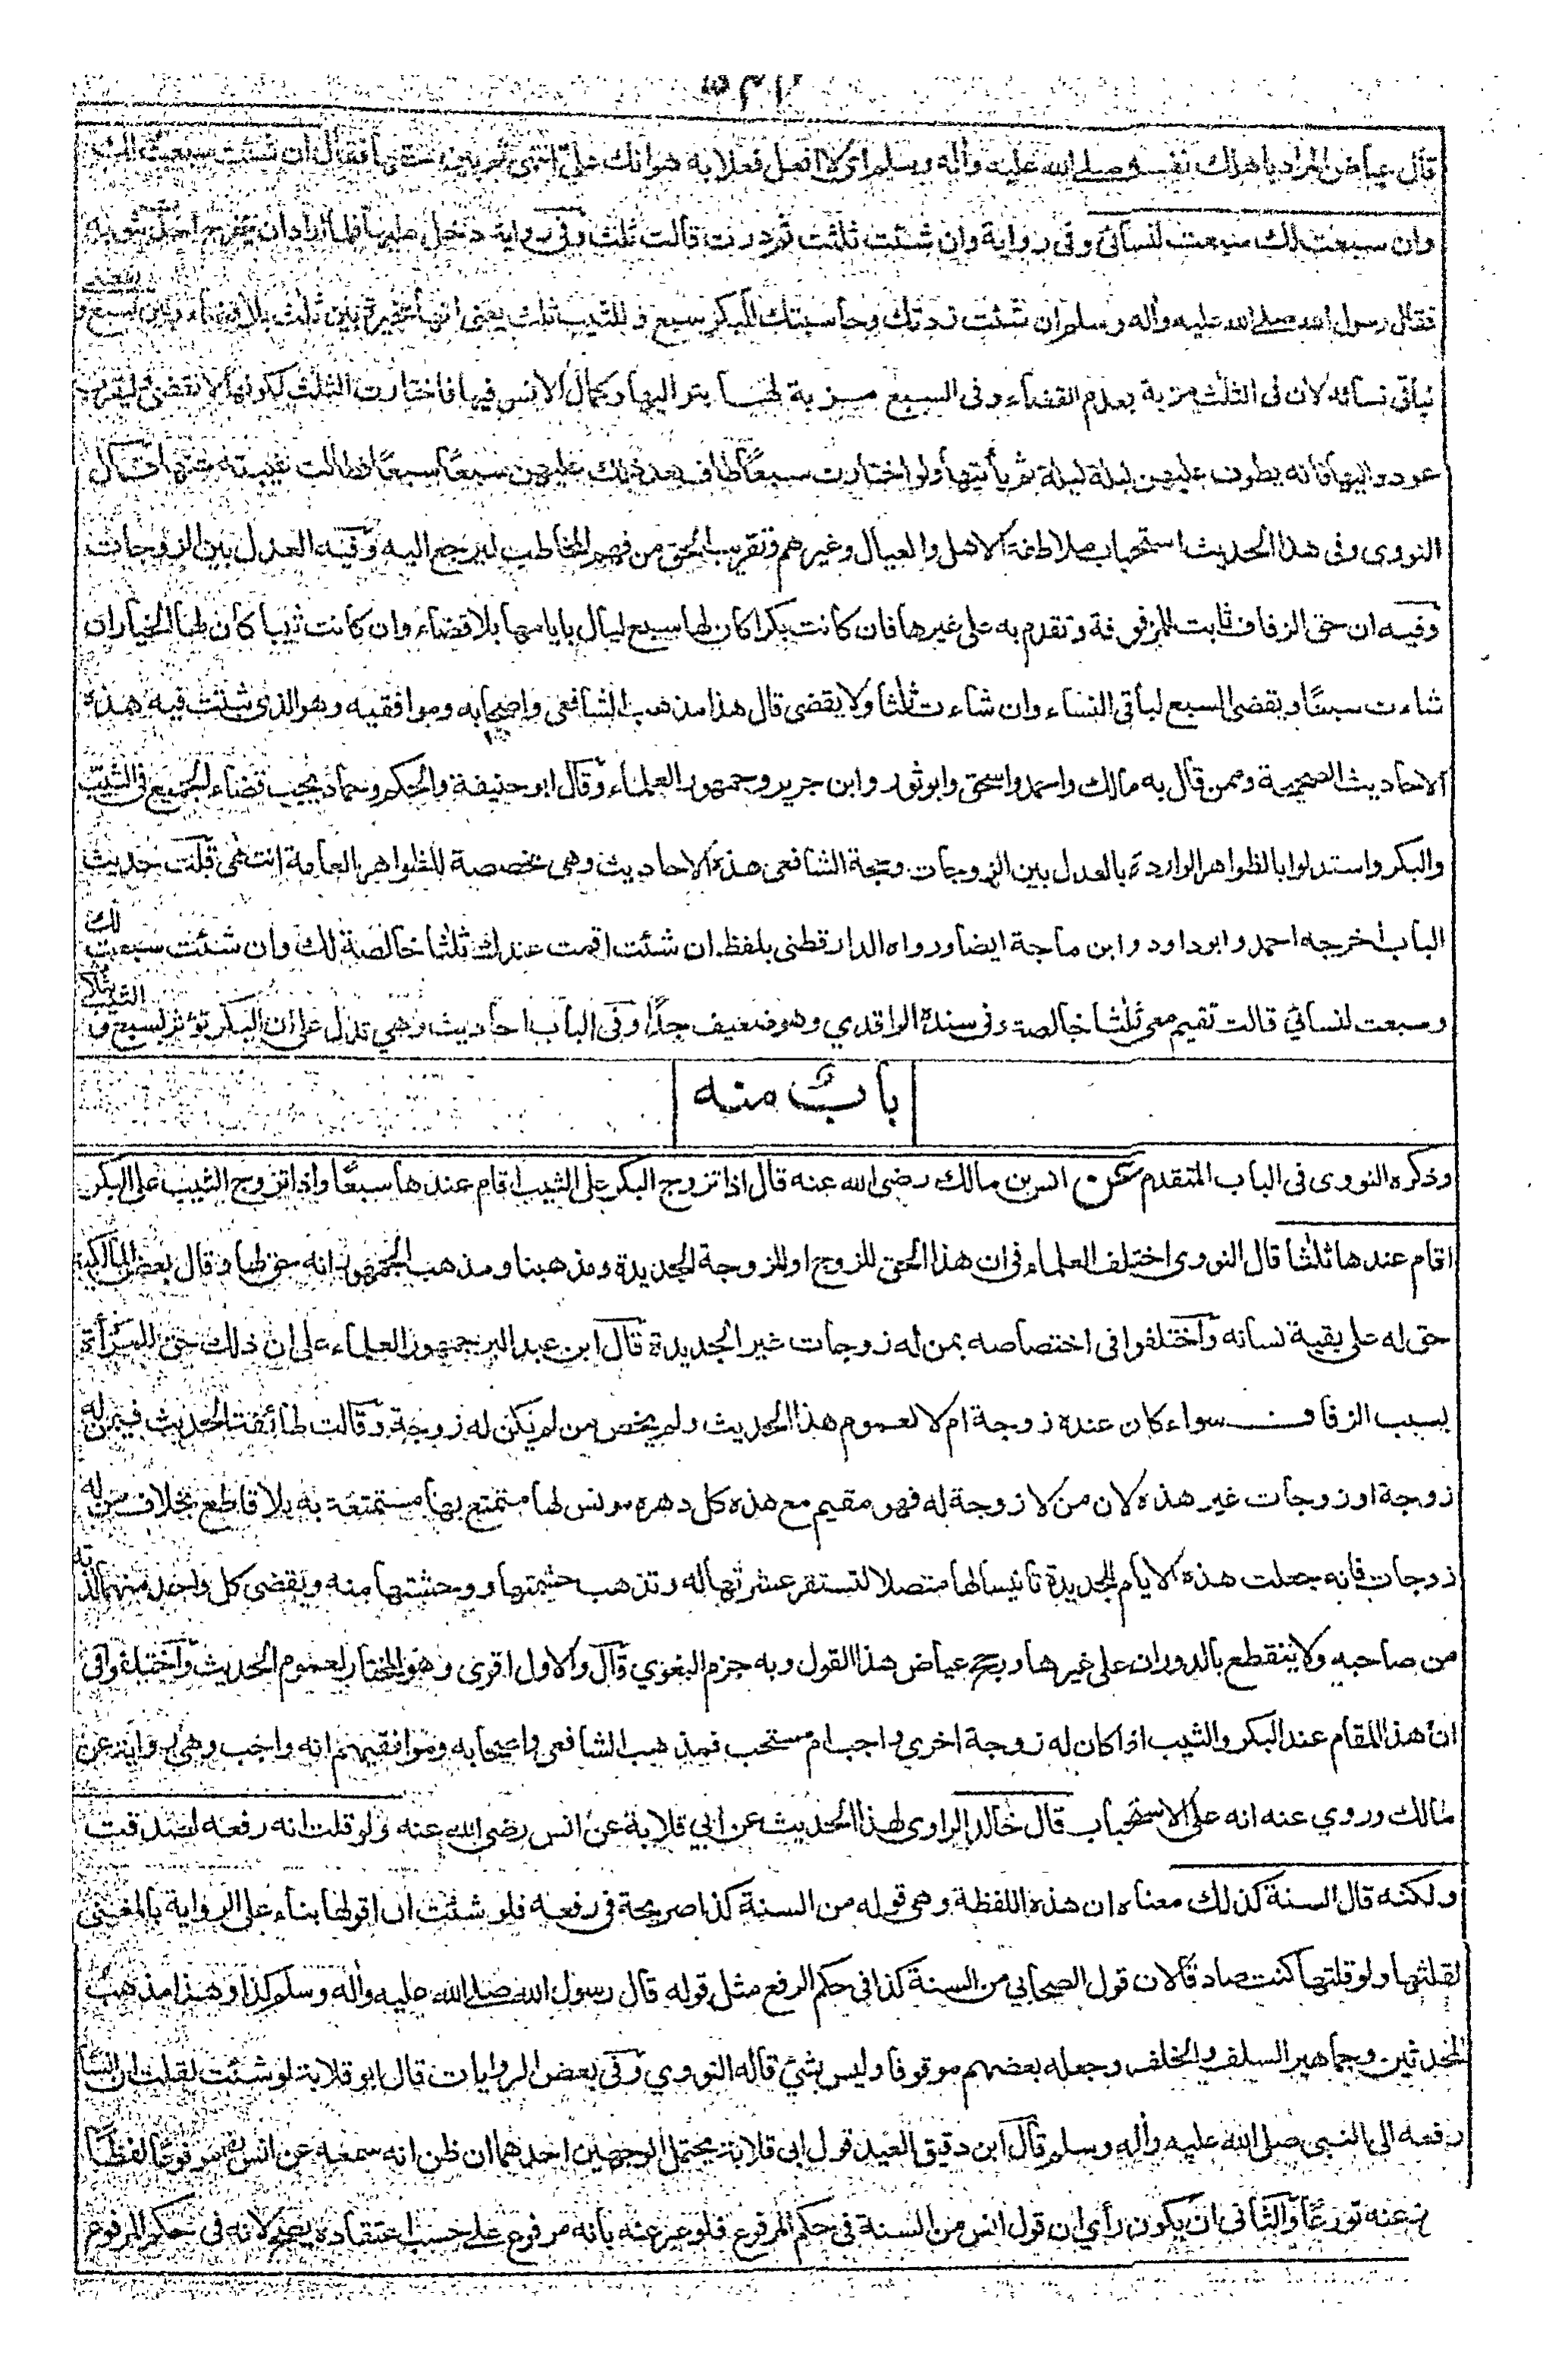 قال عياض المراد باهلك نفسه صلى الله عليه وأله وسلم اى لا افعل فعلا به هوانك على انتهى ثم بين حقها فقال ان شئت سبعت لك
وان سبعت لك سبعت لنسائي وفى رواية وان شئت ثلثت ثم درت قالت ثلث وفى رواية دخل عليها فلما اراد ان يخرج اخذت بثوبه
فقال رسول الله صلى الله عليه وأله وسلم ان شئت زدتك وحاسبتك للبكر سبع وللثيب ثلث يعنى انها مخيرة بين ثلث بلا قضاء وبين سبع ويقضى
لباقى نسائه لان فى الثلث مزية بعدم القضاء وفى السبع مزية لها بتواليها وكمال الانس فيها فاختارت الثلث لكونها لا تقضى وليقرب
عوده اليها فانه يطوف عليهن ليلة ليلة ثم يأتيها ولو اختارت سبعًا طاف بعد ذلك عليهن سبعًا سبعًا فطالت غيبته عنها قال
النووى وفى هذا الحديث استحباب ملاطفة الاهل والعيال وغيرهم وتقريب الحق من فهم المخاطب ليرجع اليه وفيه العدل بين الزوجات
وفيه ان حق الزفاف ثابت للمزفوفة وتقدم به على غيرها فان كانت بكرا كان لها سبع ليال بايامها بلا قضاء وان كانت ثيبا كان لها الخيار ان
شاءت سبعًا ويقضى السبع لباقى النساء وان شاءت ثلثا ولا يقضى قال هذا مذهب الشافعى واصحابه وموافقيه وهو الذى ثبتت فيه هذه
الاحاديث الصحيحة وممن قال به مالك واحمد واسحق وابو ثور وابن جرير وجمهور العلماء وقال ابو حنيفة والحكم وحماد يجب قضاء الجميع فى الثيب
والبكر واستدلوا بالظواهر الواردة بالعدل بين الزوجات وحجة الشافعى هذه الاحاديث وهى مخصصة للظواهر العامة انتهى قلت حديث
الباب اخرجه احمد وابو داود وابن ماجة ايضا ورواه الدارقطنى بلفظ ان شئت اقمت عندك ثلثا خالصة لك وان شئت سبعت لك
وسبعت لنسائي قالت تقيم معى ثلثا خالصة وفى سنده الواقدي وهو ضعيف جدًا وفى الباب احاديث وهي تدل على ان البكر تؤثر بسبع والثيب بثلاث
بابٌ منه
وذكره النووى فى الباب المتقدم عن انس بن مالك رضى الله عنه قال اذا تزوج البكر على الثيب اقام عندها سبعًا واذا تزوج الثيب على البكر
اقام عندها ثلثا قال النووى اختلف العلماء فى ان هذا الحق للزوج او للزوجة الجديدة ومذهبنا ومذهب الجمهور انه حق لها وقال بعض المالكية
حق له على بقية نسائه واختلفوا فى اختصاصه بمن له زوجات غير الجديدة قال ابن عبد البر جمهور العلماء على ان ذلك حق للمرأة
بسبب الزفاف سواء كان عنده زوجة ام لا لعموم هذا الحديث ولم يخص من لم يكن له زوجة وقالت طائفة الحديث فيمن له
زوجة او زوجات غير هذه لان من لا زوجة له فهو مقيم مع هذه كل دهره مونس لها متمتع بها مستمتعة به بلا قاطع بخلاف من له
زوجات فانه جعلت هذه الايام للجديدة تانيسا لها متصلا لتستقر عشرتها له وتذهب حشمتها ووحشتها منه ويقضى كل واحد منهما لذته
من صاحبه ولا ينقطع بالدوران على غيرها ورجح عياض هذا القول وبه جزم البغوي قال والاول اقوى وهو المختار لعموم الحديث واختلفوا فى
ان هذا المقام عند البكر والثيب اذا كان له زوجة اخرى واجب ام مستحب فمذهب الشافعى واصحابه وموافقيهم انه واجب وهى رواية عن
مالك وروي عنه انه على الاستحباب قال خالد الراوى لهذا الحديث عن ابي قلابة عن انس رضى الله عنه ولو قلت انه رفعه لصدقت
ولكنه قال السنة كذلك معناه ان هذه اللفظة وهى قوله من السنة كذا صريحة فى رفعه فلو شئت ان اقولها بناء على الرواية بالمعنى
لقلتها ولو قلتها كنت صادقا لان قول الصحابي من السنة كذا فى حكم الرفع مثل قوله قال رسول الله صلى الله عليه وأله وسلم كذا وهذا مذهب
المحدثين وجماهير السلف والخلف وجعله بعضهم موقوفا وليس بشئ قاله النووي وفى بعض الروايات قال ابو قلابة لو شئت لقلت ان انسا
رفعه الى النبى صلى الله عليه وأله وسلم قال ابن دقيق العيد قول ابى قلابة يحتمل الوجهين احدهما ان ظن انه سمعه عن انس مرفوعًا لفظًا
عنه تورعًا والثانى ان يكون رأي ان قول انس من السنة فى حكم المرفوع فلو عبر عنه بأنه مرفوع على حسب اعتقاده يصح لانه فى حكم المرفوع